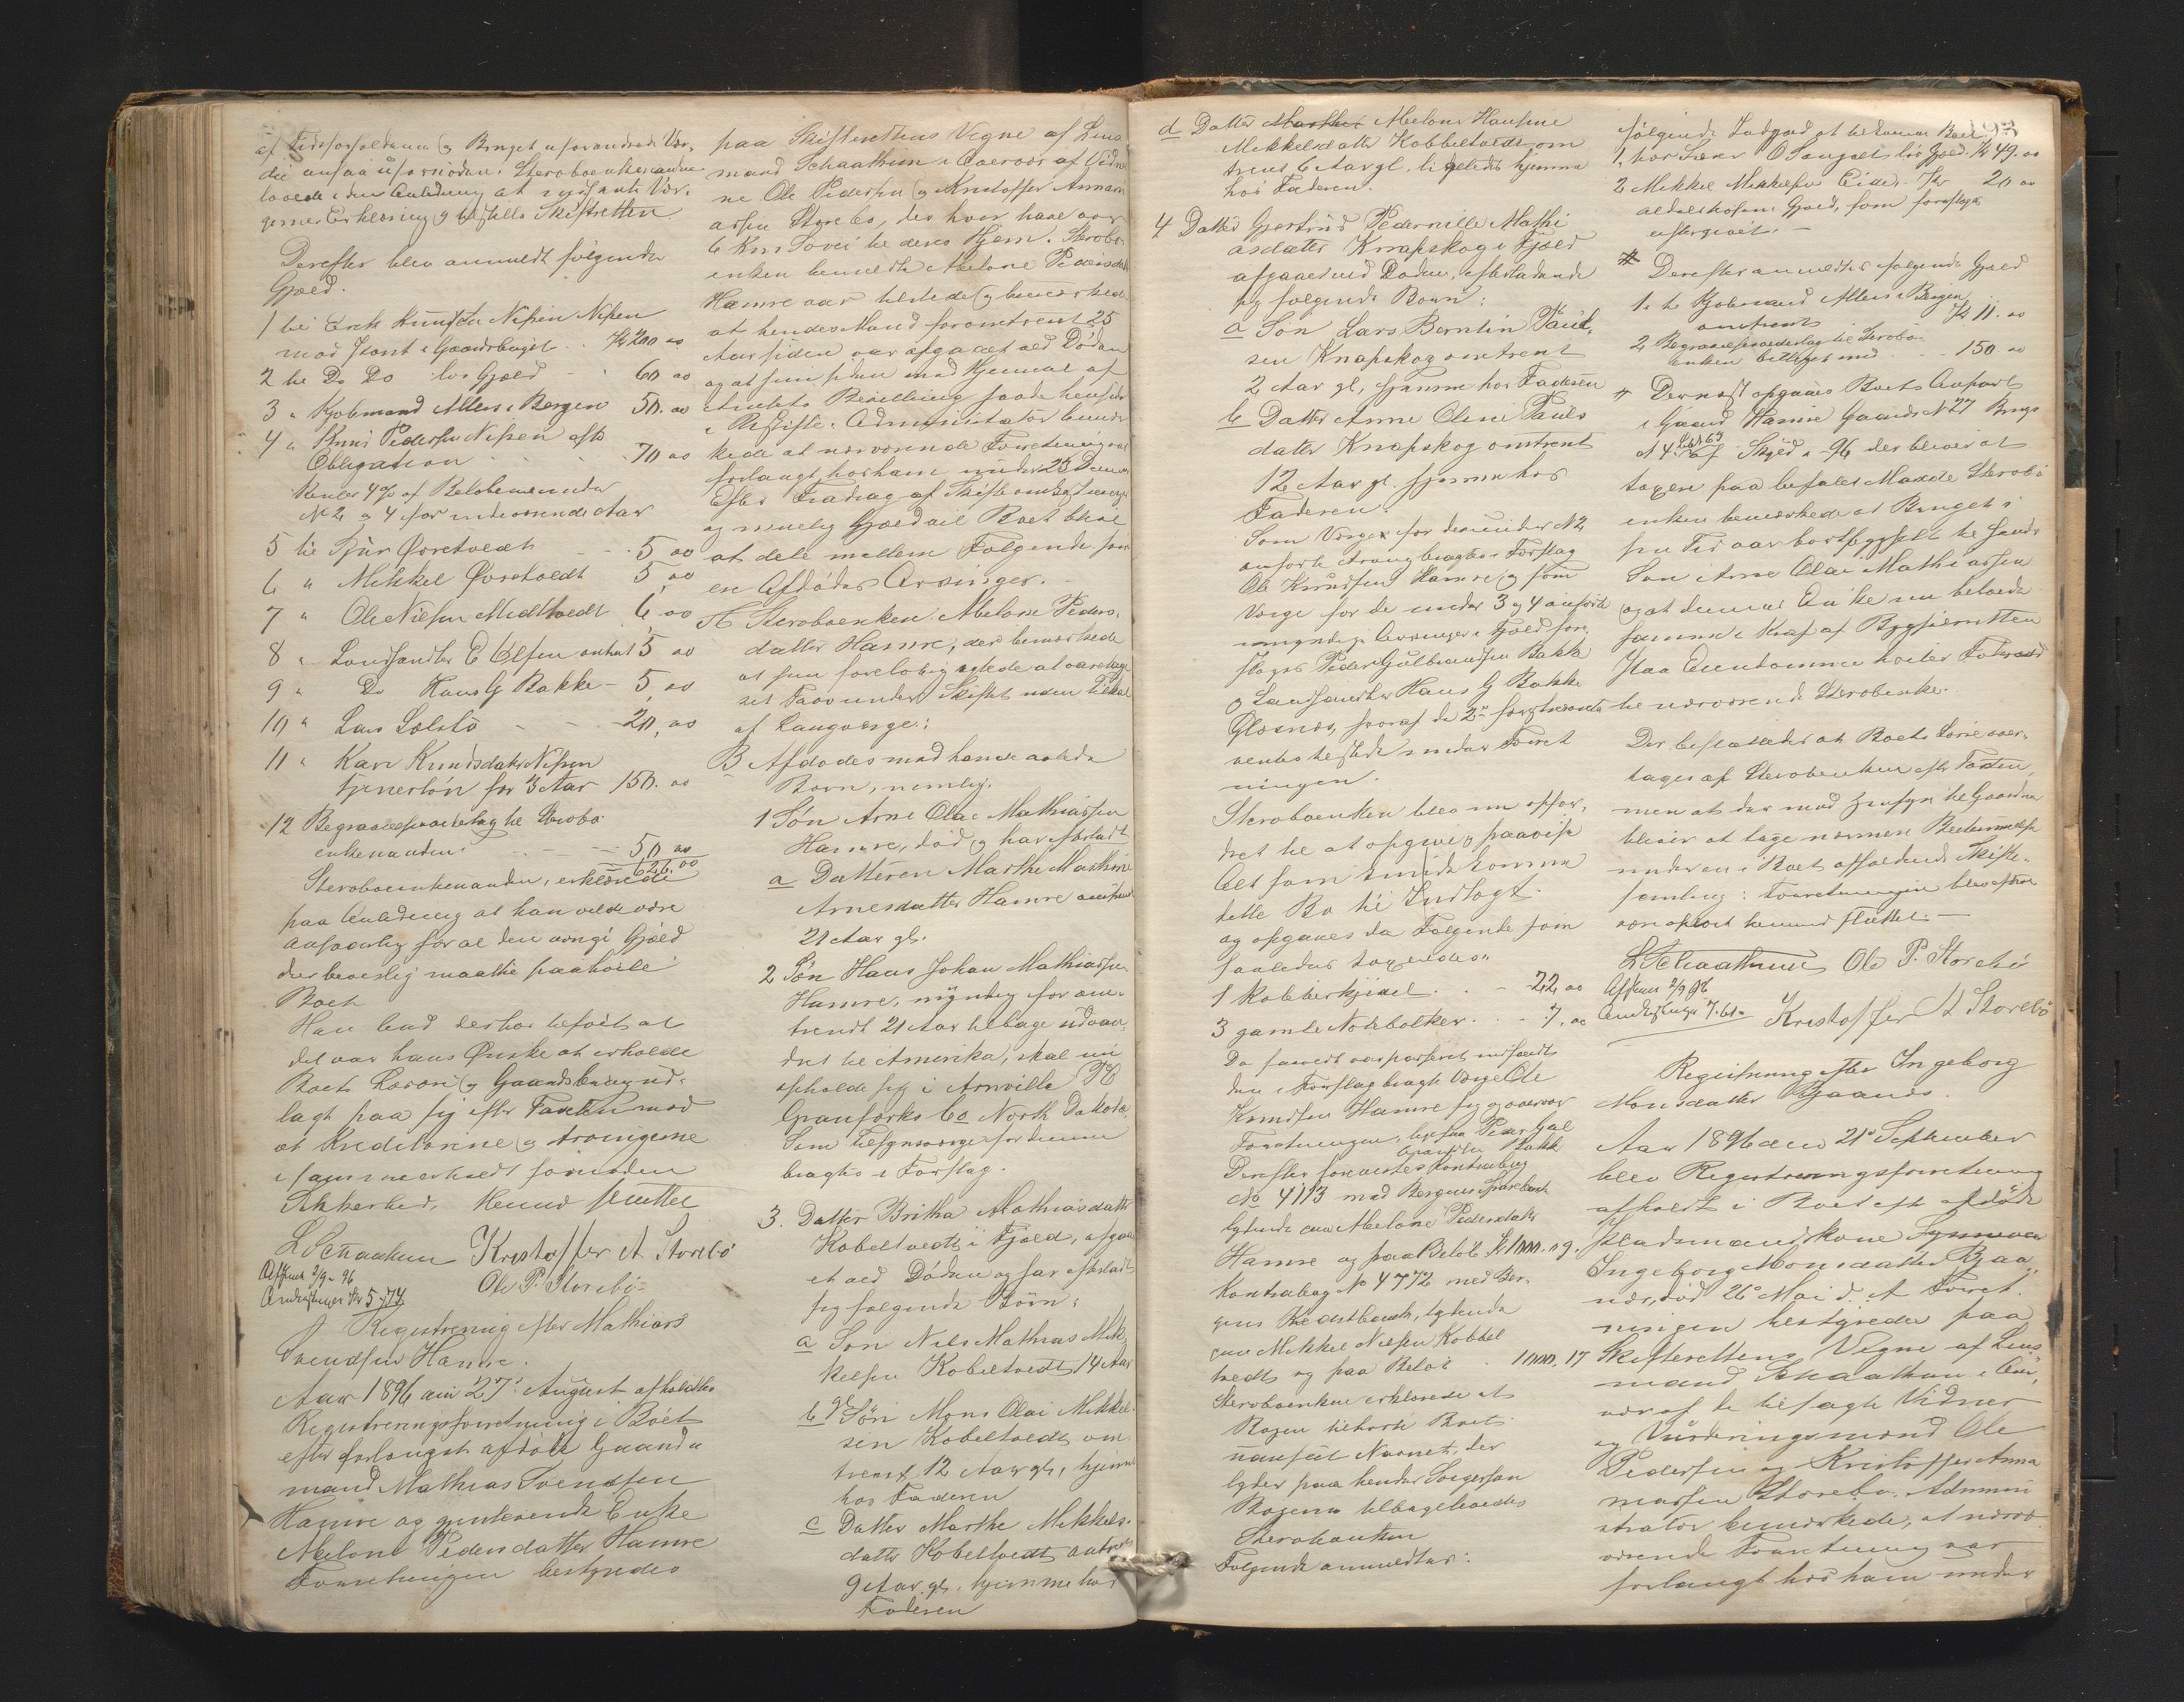 af Tidsforholdene og Bruget uforandrede Vær-
die ansaa ufornöden. Sterboenkemanden
lovede i den Anledning at indhente Vær-
gernes Erklæring og tilstille Skifteretten
Derefter blev anmeldt følgende
Gjæld.
1 til Erik Knudsen Nipen Nipen
mod Pant i Gaardsbruget Kr 200 00
2 til Do Do lös Gjæld 60 00
3 " Kjöbmand Allers i Bergen 50. 00
4 " Knud Pedersen Nipen efter
Obligation 70 00
Renter 4 % af Belöbene under
No 2 og 4 for indeværende Aar
5 til Sjur Övretvedt 5 00
6 " Mikkel Övretvedt 5 00
7 " Ole Nilsen Midttvedt 6, 00
8 " Landhandler E Olsen 5 00
9 " Do Hans G Bakke 5, 00
10 " Lars Solstö 20, 00
11 " Kari Knudsdatter Nipen
tjenerlön for 3 Aar 150. 00
12 Begravelsesudlæg til Sterbo
enkemanden 50 00
626.00
Sterboenkemanden, erklærede
paa Anledning at han vilde være
ansvarlig for al den övrige Gjæld
der beviselig maatte paahvile
Boet
Han bad derhos tilföiet at
det var hans Önske at erholde
Boets Lösöre og Gaardsbrug ud-
lagt paa sig efter Taxten mod
at Kreditorerne og Arvingerne
i samme erholdt fornöden
Sikkerhed. Hermed sluttet
L Schaathun Kristoffer A. Storebö
Afskrevet 2/9 - 96 Ole P. Storebö
Kr 5,74
Registrering efter Mathias
Svendsen Hamre.
Aar 1896 den 27de August afholdtes
Registreringsforretning i Boet
efter forlængst afdöde Gaard-
mand Mathias Svendsen
Hamre og gjenlevende Enke
Abelone Pedersdatter Hamre
Forretningen bestyredes
paa Skifterettens Vegne af Lens
mand Schaathun i Overvær af Vidne-
ne Ole Pedersen og Kristoffer Annan
assen Storebö, der hver have over
6 Km Vei til deres Hjem. Sterbo-
enken benævnte Abelone Pedersdatter
Hamre var tilstede og bemærkede
at hendes Mand for omtrent 25
Aar siden var afgaaet ved Döden
og at hun siden med Hjemmel af
Amtets Bevilling havde hensiddet
i Uskifte. Administrator bemær
kede at nærværende Forretning var
forlangt hos ham under 25 Dennes
Efter Fradrag af Skifteomkostninger
og muelig Gjæld vil Boet blive
at dele mellem Fölgende som
ere Afdödes Arvinger.
A Sterboenken Abelone Peders-
datter Hamre, der bemærkede
at hun foreløbig agtede at varetage
sit Tarv under Skiftet uden Tilkald
af Laugværge:
B Afdödes med hende avlede
Born, nemlig.
1 Sön Arne Olai Mathiassen
Hamre, död og har efterladt
a Datteren Marthe Mathine
Arnesdatter Hamre omtrent
21 Aar gl.
2 Sön Hans Johan Mathiassen
Hamre, myndig for om-
trendt 21 Aar tilbage udvan-
dret til Amerika, skal nu
opholde sig i Arnville P.O
Granforks Co North Dakota.
Som Tilsynsværge for denne
bragtes i Forslag.
3. Datter Britha Mathiasdatter
Kobeltvedt i Fjeld, afgaa
et ved Döden og har efterladt
sig fölgende Börn:
a Son Nils Mathias Mik-
kelsen Kobeltvedt 14 Aar
gl
b Sön Mons Olai Mikkel
sen Kobeltvedt om
trent 12 Aar gl, hjemme
hos Faderen
c Datter Marthe Mikkels-
datter Kobeltvedt omtrent
9 Aar gl. hjemme hos
Faderen
d Datter Marthe Abelone Hansine
Mikkelsdatter Kobbeltvedt om
trent 6 Aar gl. ligeledes hjemme
hos Faderen.
4 Datter Gjertrud Pedernille Mathi
asdatter Knapskog i Fjeld
afgaaet ved Döden, efterladende
sig fölgende Börn:
a Sön Lars Berntin Pauls-
sen Knapskog omtrent
2 Aar gl, hjemme hos Faderen
b Datter Anne Oline Pauls
datter Knapskog omtrent
12 Aar gl. hjemme hos
Faderen.
Som Værge for den under No 2
anförte Arving bragtes i Forslag
Ole Knudsen Hamre og som
Værge for de under 3 og 4 anförte
umyndige Arvinger i Fjeld fore-
slages Peder Gulbrandsen Bakke
og Landhandler Hans G Bakke
Glesnæs, hvoraf de 2de sidstnævnte
ventes tilstede under Forret
ningen.
Sterboenken blev nu opfor-
dret til at opgive og paavise
Alt som kunde komme
dette Bo til Indtægt.
og opgaves da Fölgende som
saaledes taxeredes.
1 Kobberkjedel 22 00
3 gamle Notebolker 7, 00
Da saavidt var passeret indfandt
den i Forslag bragte Værge Ole
Knudsen Hamre sig og overvar
Forretningen, ligesaa Peder Gul
brandsen Bakke
Derefter foreviestes Kontrabog
No 4113 med Bergens Sparebank
lydende paa Abelone Pedersdatter
Hamre og paa Belöb Kr 1000.09.
Kontrabog No 4772 med Ber-
gens Kreditbank, lydende
paa Mikkel Nielsen Kobbel
tvedt og paa Belöb 1000. 17
Sterboenken erklærede at
Bogen tilhörte Boet
uanseet Navnet, der
lyder paa hendes Svigersön
Bogerne tilbageleveredes
Sterboenken
Fölgende anmeldtes:
195
fölgende Indgjæld at tilkomme Boet.
1. hos Lars O Sangolt lös Gjæld Kr 49. 00
2 Mikkel Mikkelsen Eide Kr 20 00
ældre Gjæld, som foresloges
eftergivet. —
# Derefter anmeldtes fölgende Gjæld
1. til Kjöbmand Allers i Bergen
omtrent Kr 11. 00
2. Begravelsesudlæg til Sterbo
enken 150 00
# Dernæst opgaves Boets Anpart
i Gaard Hamre Gaards No 27 Brugs
No 4 af Skyld 96 der blever at
taxere paa befalet Maade Sterbo
enken bemærkede at Bruget i
sin Tid var bortbygslet til hendes
Sön Arne Olai Mathiassen
og at dennes Enke nu beboede
samme i Kraft af Bygselretten
Paa Eiendommen hviler Föderaad
til nærværende Sterboenke.
Der besluttedes at Boets Lösöre over-
tages af Sterboenken efter Taxten,
men at der med Hensyn til Gaarden
bliver at tage nærmere Bestemmelse
under en i Boet afholdende Skifte-
samling: Forretningen blev efter
oplæst hermed sluttet. —
L Schaathun Ole P. Storebö
Afskrevet 2/9 96
Kr 7.61 Kristoffer A Storebö
Registrering efter Ingeborg
Monsdatter Bjaanes.
Aar 1896 den 21de September
blev Registreringsforretning
afholdt i Boet efter afdöde
Pladsmandskone Synneva
Ingeborg Monsdatter Bjaa-
næs, död 26de Mai d. A. Forret-
ningen bestyredes paa
Skifterettens Vegne af Lens
mand Schaathun i Over-
vær af de tilsagte Vidner
og Vurderingsmænd Ole
Pedersen og Kristoffer Anna
niassen Storebö. Admini
strator bemærkede, at nærvæ-
værende Forretning var
forlangt hos ham under